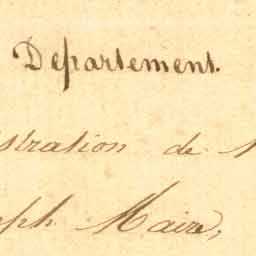 Departement.
stration de
ph Maire,